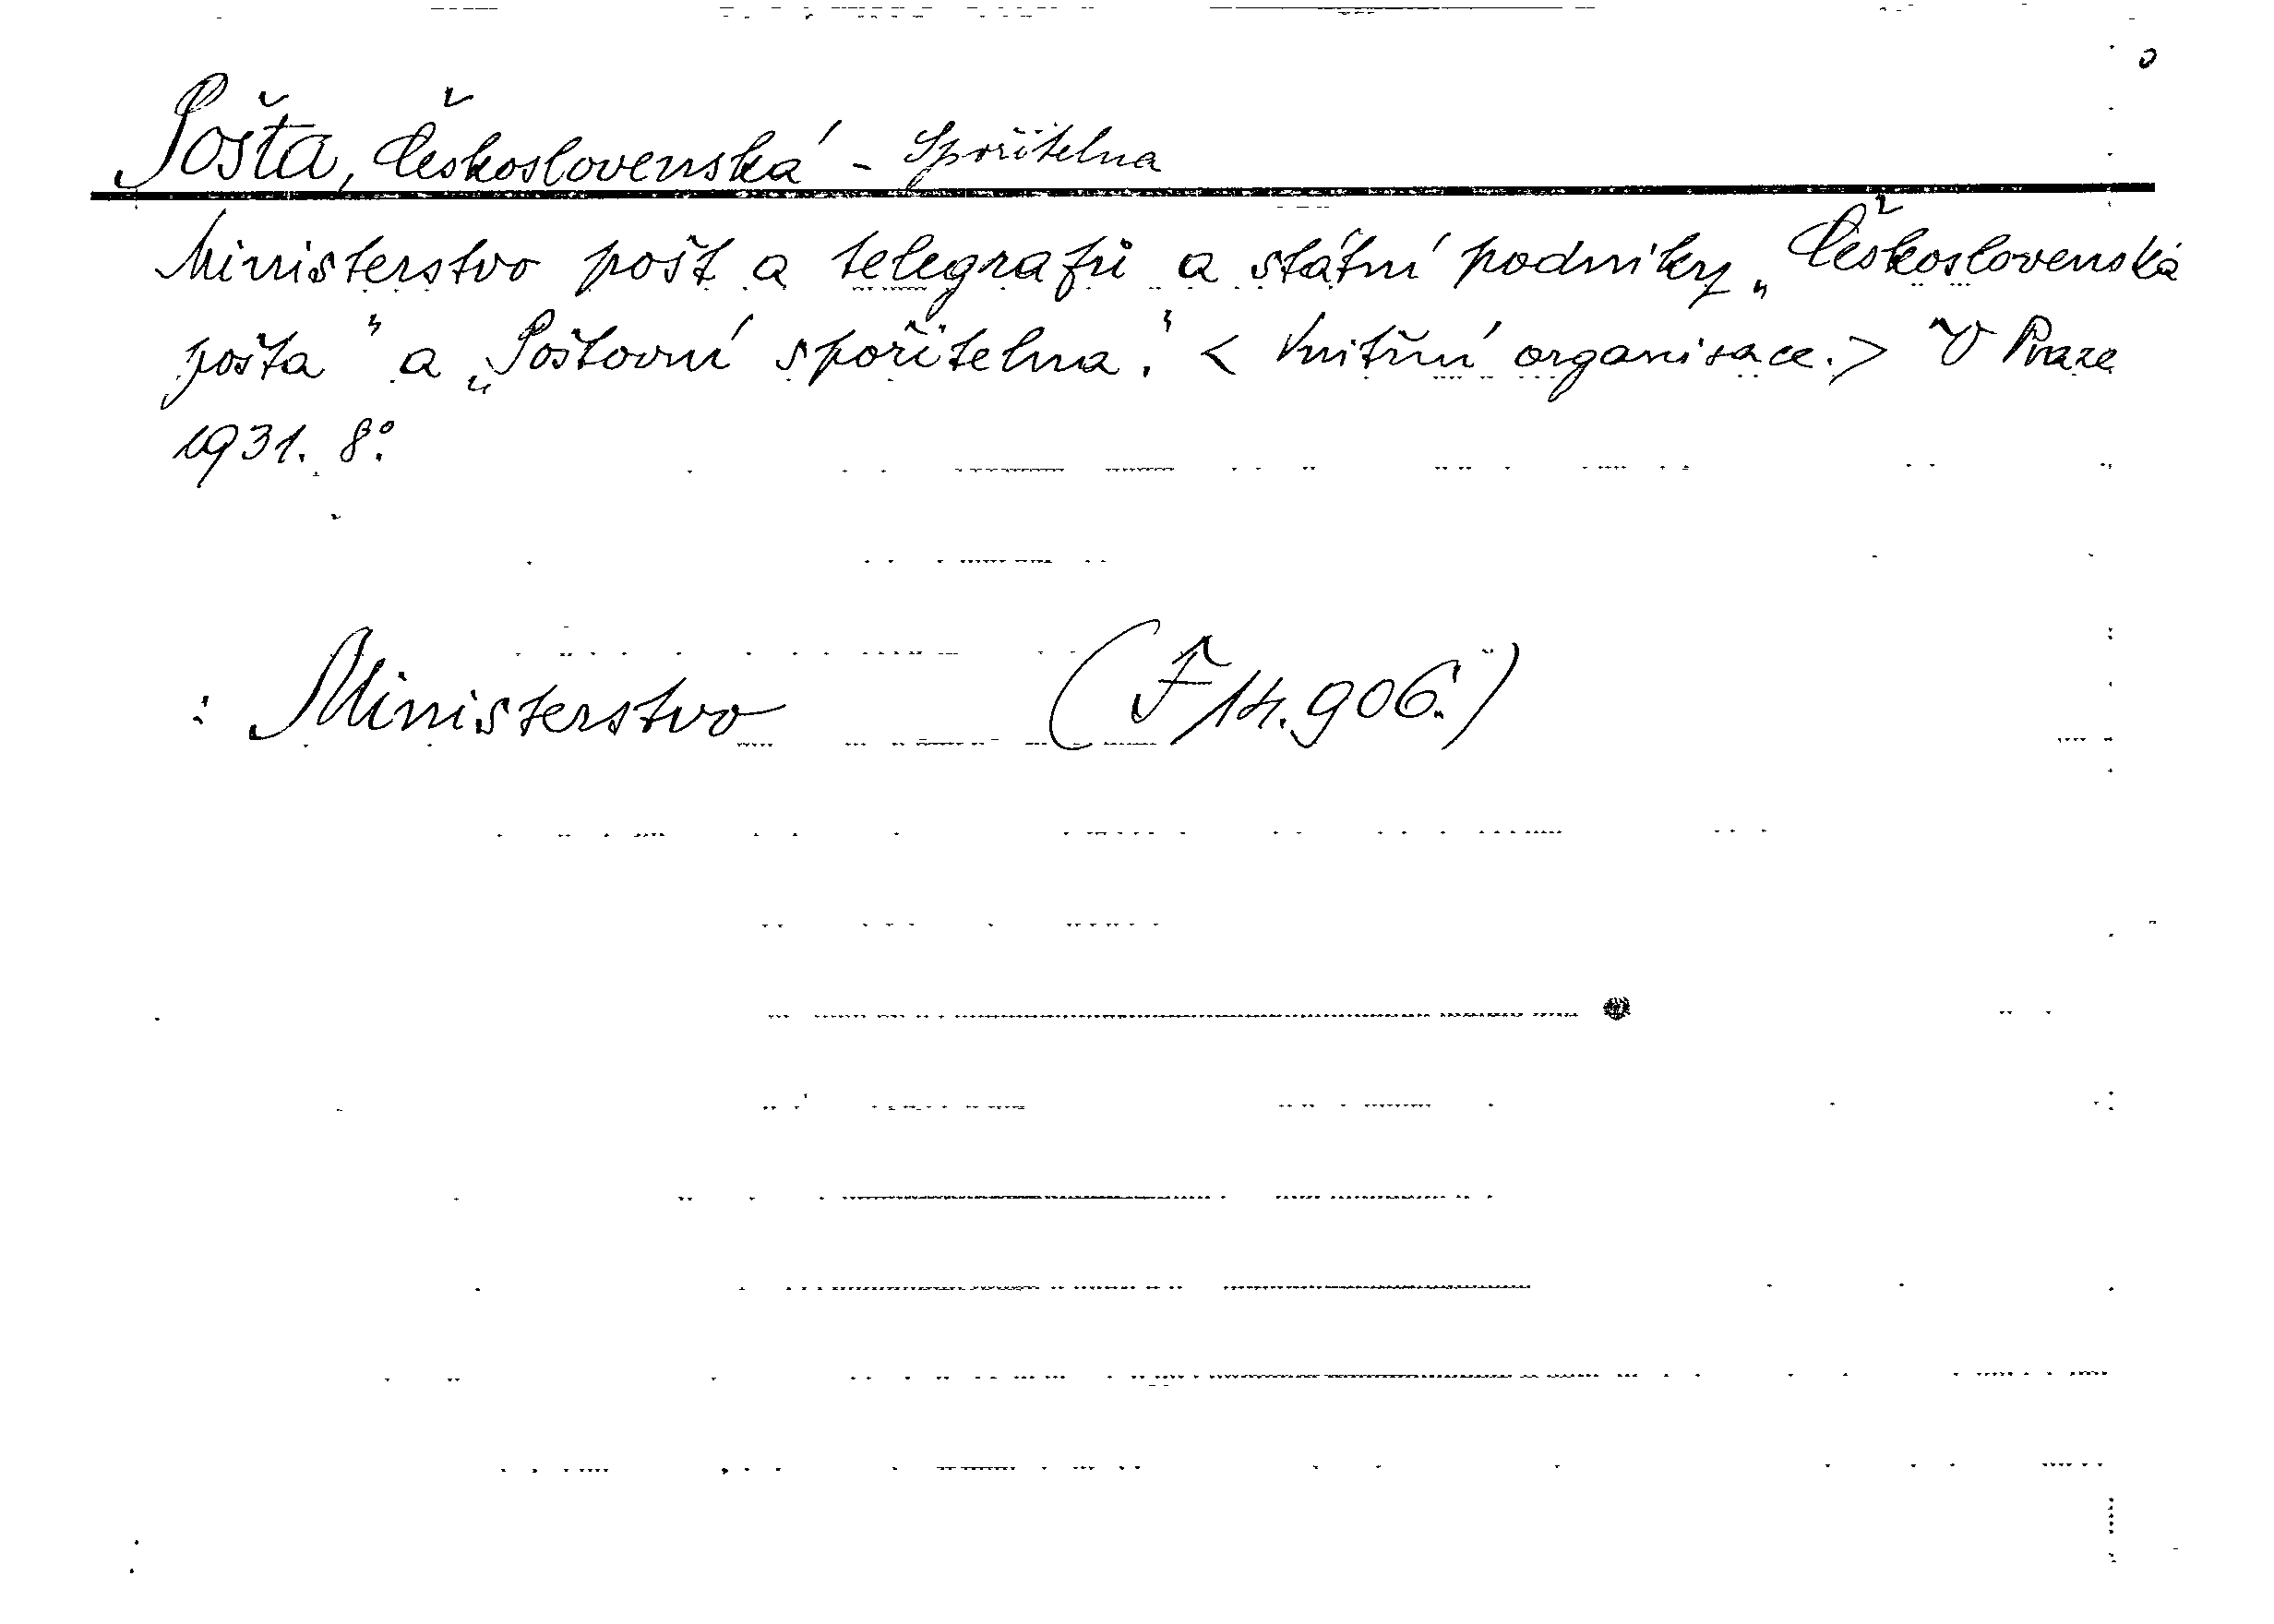 Pošta, Československá - Spořitelna
Ministerstvo pošt a telegrafů a státní podniky „Československá
pošta" a „Poštovní spořitelna." < Vnitřní organisace. > V Praze
1931. 8°.
: Ministerstvo (F 14.906.)